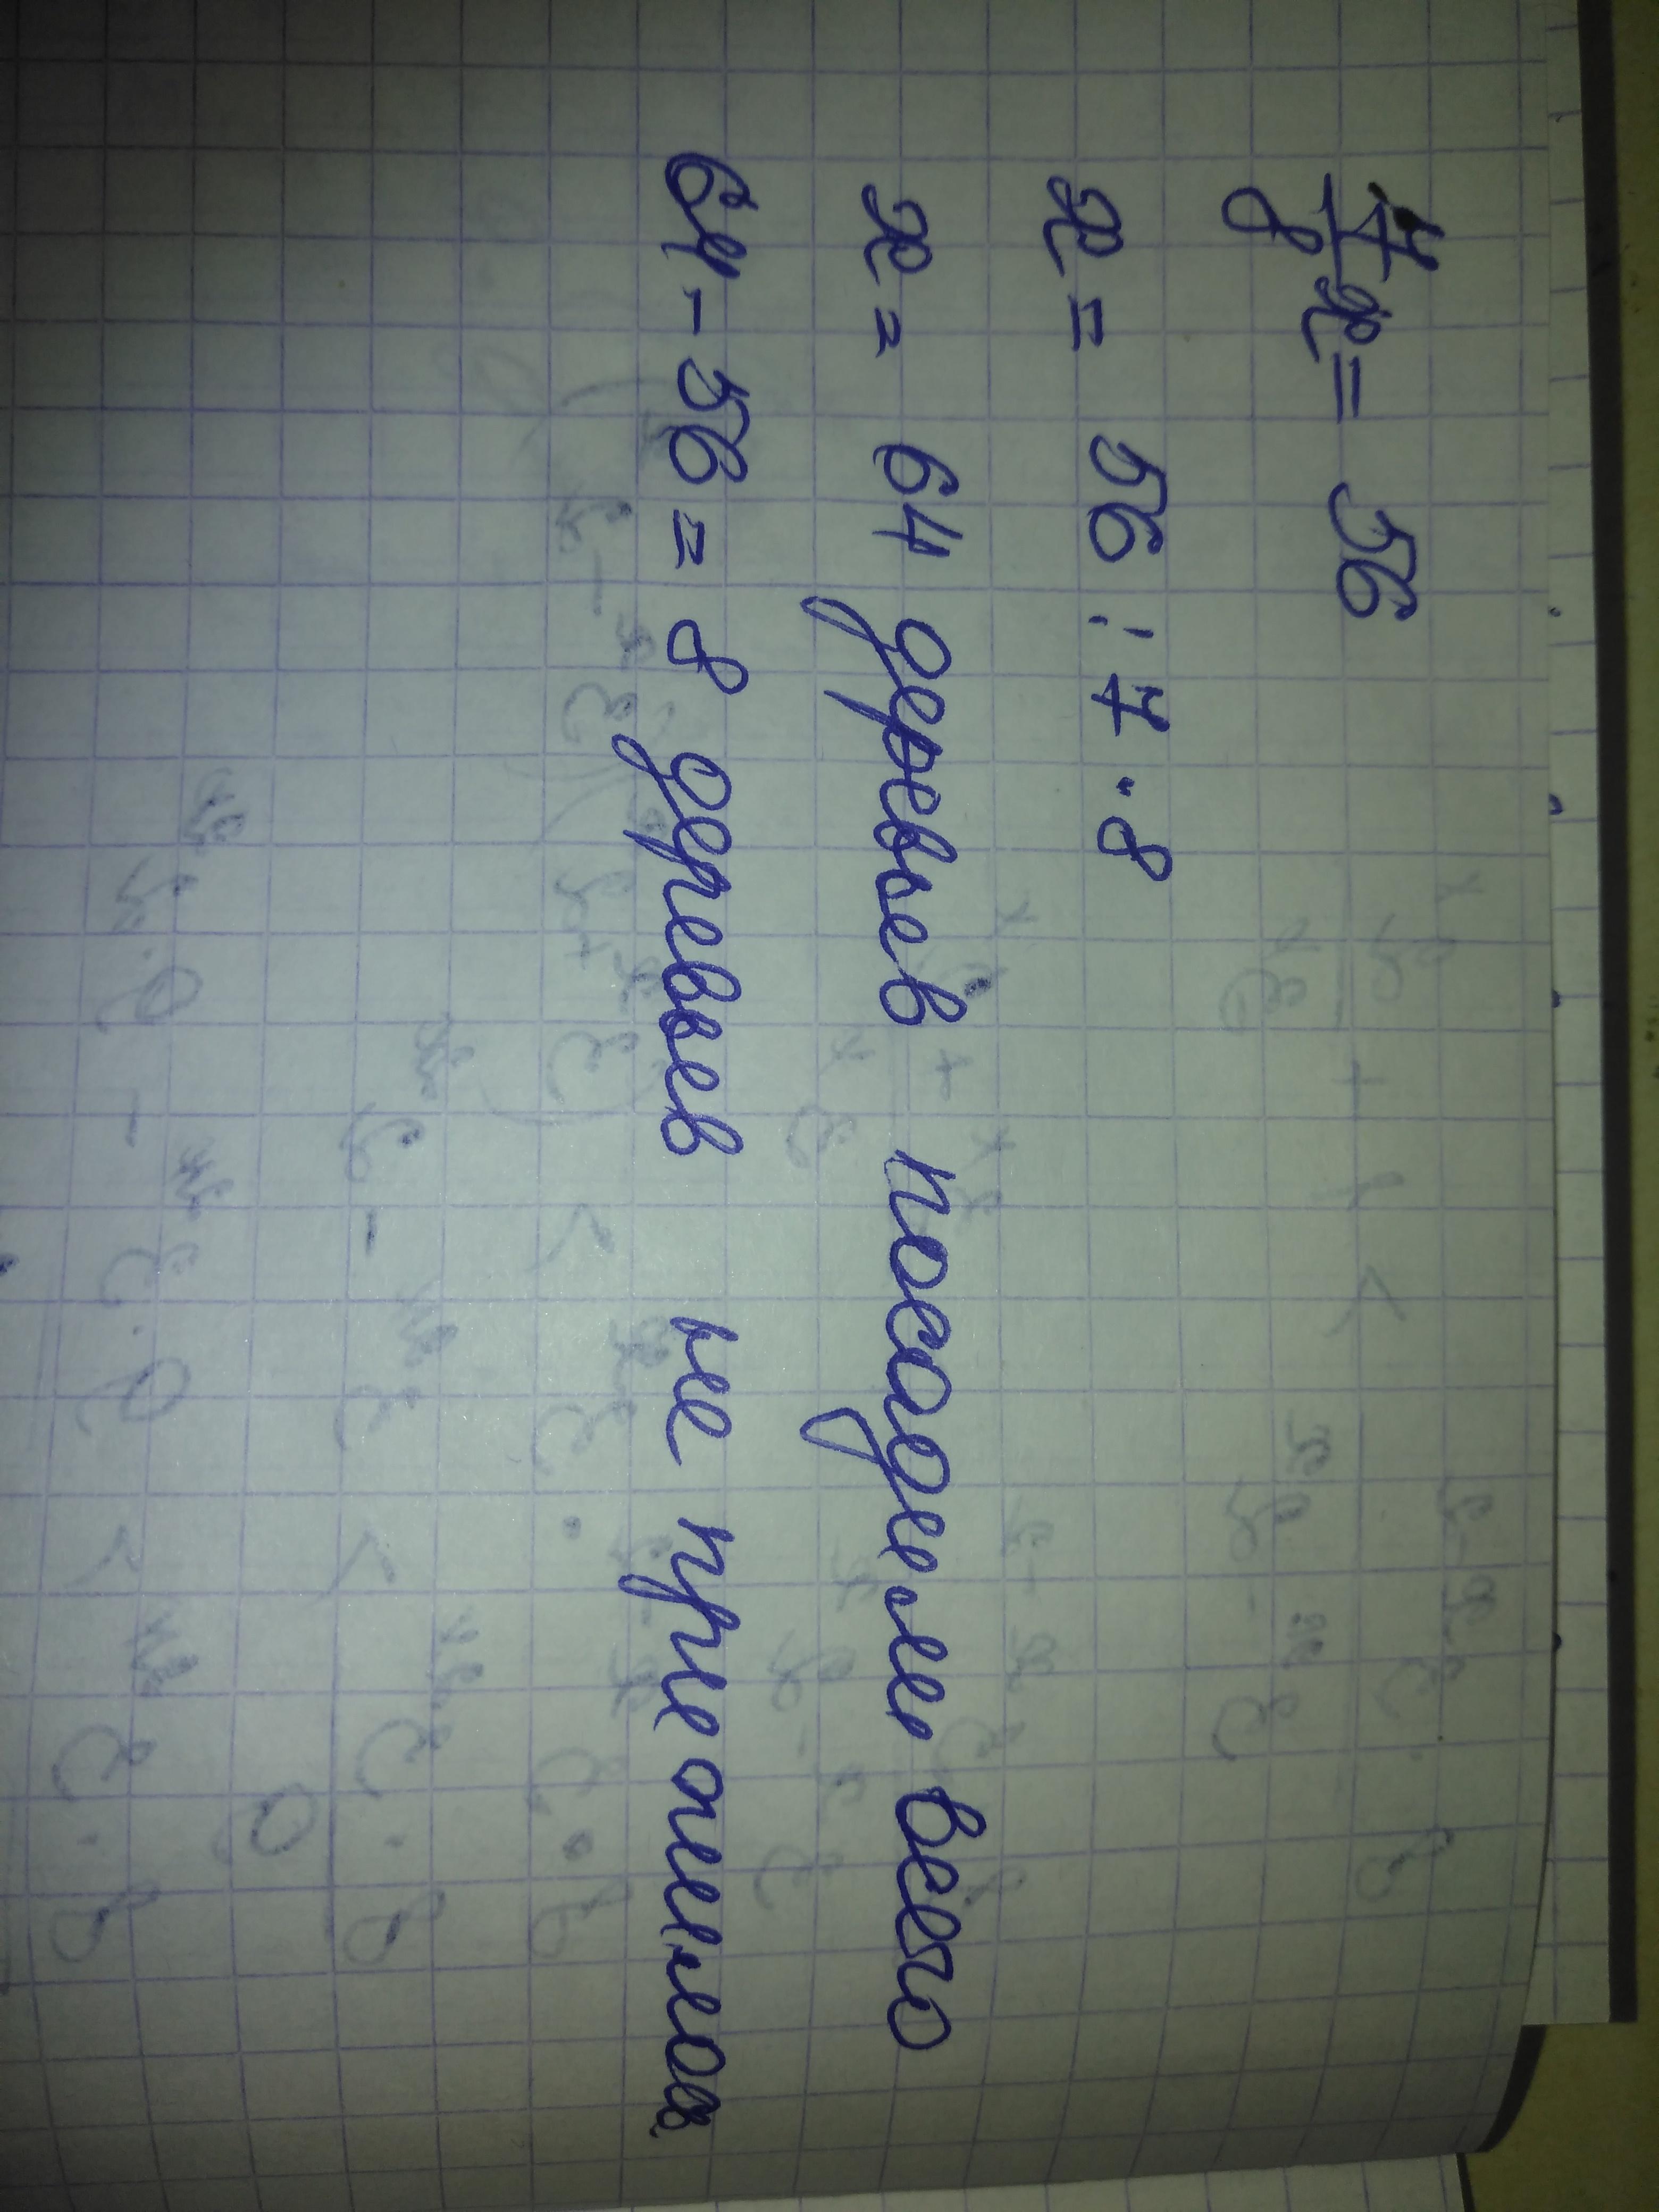 7/8 x = 56
x = 56 : 7 · 8
x = 64 деревьев посадили всего
64 - 56 = 8 деревьев не принялось